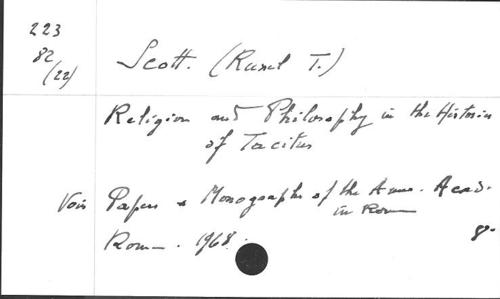 223
82
(22)
Scott. (Russel T.)
Religion and Philosophy in the Histories
of Tacitus
Voir Papers & Monographs of the Amer. Acad.
in Rome
Rome. 1968.
8°